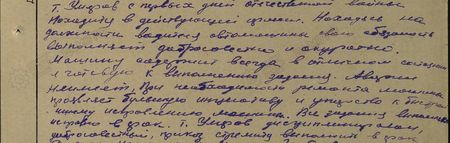 т. Умаров с первых дней отечественной войны
Находится в действующей армии. Находясь на
должности водителя автомашины свою обязанность
выполняет добросовестно и аккуратно.
Машину содержит всегда в отличном состоянии
и готовую к выполнению задания. Аварий
не имеет. При необходимости ремонта машины
проявляет бульшую инициативу и умение к
исправлению машины. Все задания выполняет
в срок. т. Умаров дисциплинирован,
добросовестный, приказ стремится выполнить в срок